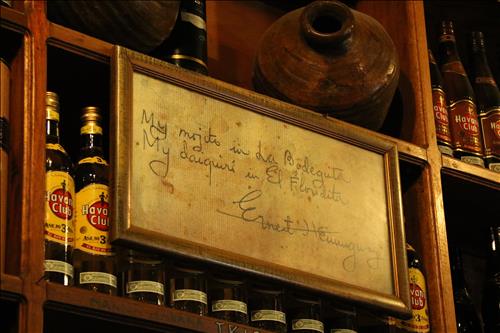 My mojito in La Bodeguita
My daiquiri in El Floridita
Ernest Hemingway
Havana Club
AÑEJO 3
Havana Club
AÑEJO 3
Havana Club
Havana Club
Havana Club